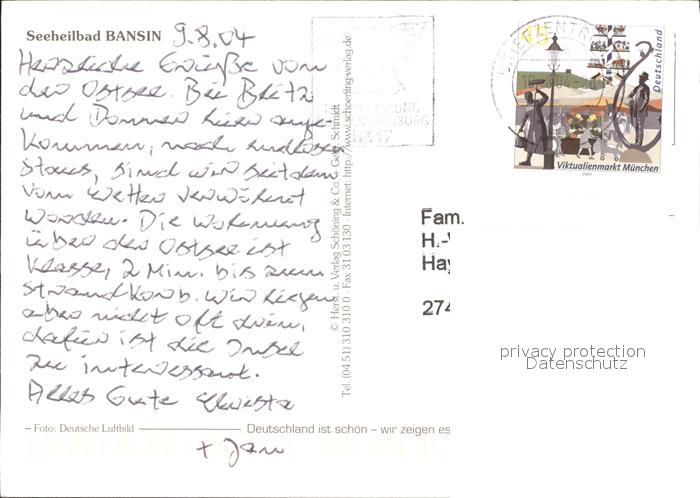 Seeheilbad BANSIN 9.8.04
Herzliche Grüße von
der Ostsee. Bei Blitz
und Donner hier ange-
kommen, nach endlosen
Staus, sind wir seitdem
vom Wetter verwöhnt
worden. Die Wohnung
über der Ostsee ist
klasse, 2 Min. bis zum
Strandkorb. Wir liegen
aber nicht oft drin,
dafür ist die Insel
zu interessant.
Alles Gute Christa
+ Jan
– Foto: Deutsche Luftbild
Deutschland ist schön – wir zeigen es
© Herst. u. Verlag Schöning & Co. + Gebr. Schmidt
Tel. (04 51) 310 310 0 · Fax 31 03 130 · Internet: http://www.schoening-verlag.de
BRIEFZENTRUM
Deutschland
Viktualienmarkt München
2003
Fam.
H.-
Hay
274
privacy protection
Datenschutz